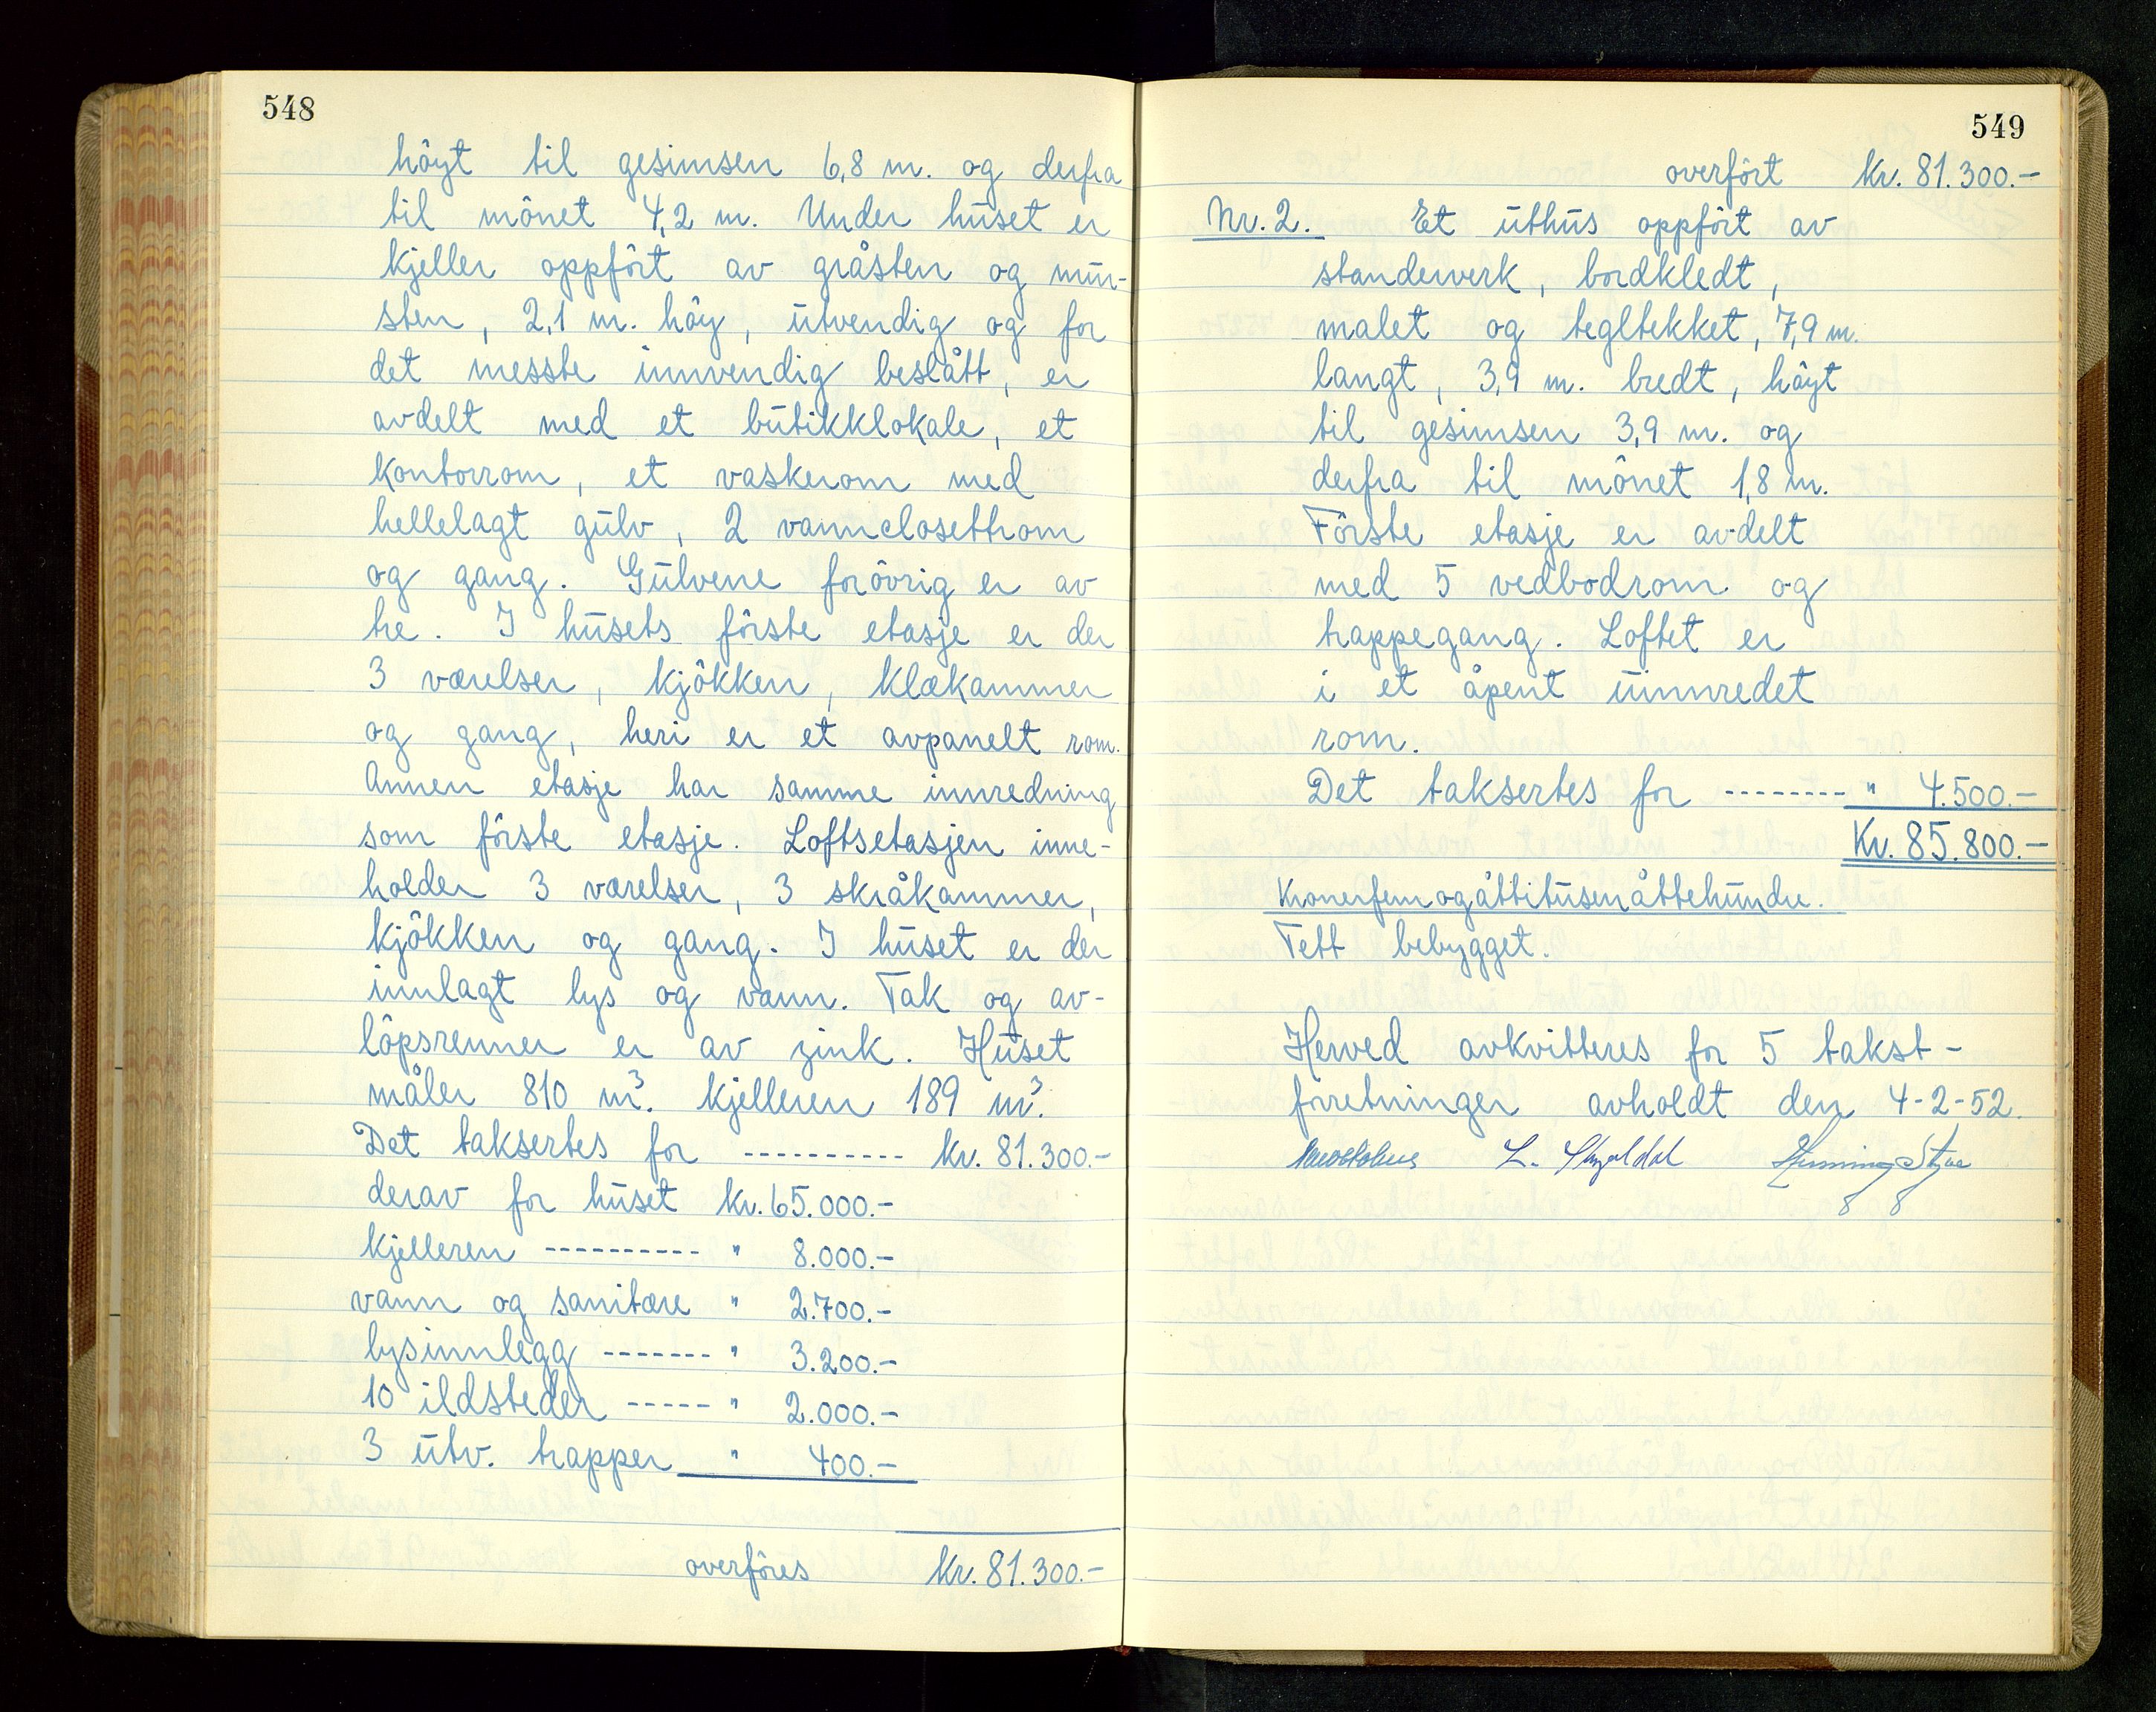 548
höyt til gesimsen 6,8 m. og derfra
til mönet 4,2 m. Under huset er
kjeller oppfört av gråsten og mur-
sten, 2,1 m. höy, utvendig og for
det messte innvendig beslått, er
avdelt med et butikklokale, et
kontorrom, et vaskerom med
hellelagt gulv, 2 vannclosettrom
og gang. Gulvene forövrig er av
tre. I husets förste etasje er der
3 værelser, kjökken, klækammer
og gang, heri er et avpanelt rom.
Annen etasje har samme innredning
som förste etasje. Loftsetasjen inne-
holder 3 værelser, 3 skråkammer,
kjökken og gang. I huset er der
innlagt lys og vann. Tak og av-
löpsrenner er av zink. Huset
måler 810 m³. kjelleren 189 m³.
Det taksertes for ---------- kr. 81.300.-
derav for huset kr. 65.000.-
kjelleren ---------- " 8.000.-
vann og sanitære " 2.700.-
lysinnlegg ------- " 3.200.-
10 ildsteder ----- " 2.000.-
3 utv. trapper " 400.-
overföres kr. 81.300.-
549
overfört kr. 81.300.-
Nr. 2. Et uthus oppfört av
standerverk, bordkledt,
malet og tegltekket, 7,9 m.
langt, 3,9 m. bredt, höyt
til gesimsen 3,9 m. og
derfra til mönet 1,8 m.
Förste etasje er avdelt
med 5 vedbodrom og
trappegang. Loftet er
i et åpent uinnredet
rom.
Det taksertes for -------- " 4.500.-
Kr. 85.800.-
Kronerfemogåttitusenåttehundre.
Tett bebygget.
Herved avkvitteres for 5 takst-
forretninger avholdt den 4-2-52.
L. Skjoldal Henning